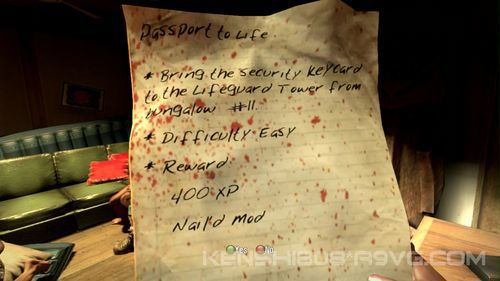 Passport to Life
* Bring the security keycard
to the Lifeguard Tower from
bungalow #11.
* Difficulty Easy
* Reward
400 XP
Nail'd Mod
Yes No
KENSHIBU@A9VG.COM